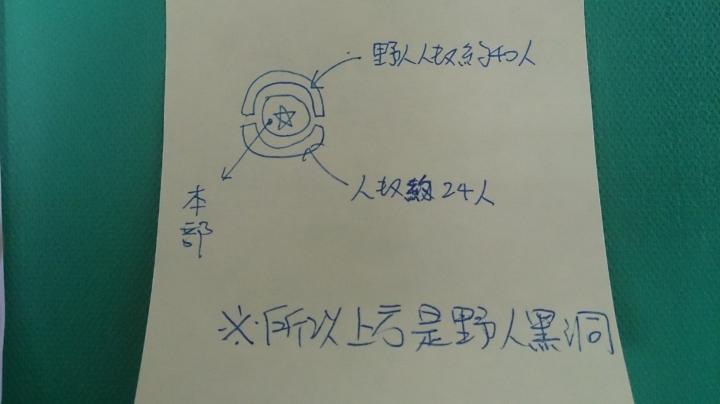 野人人权約40人
人权約24人
本
部
※所以上方是野人黑洞